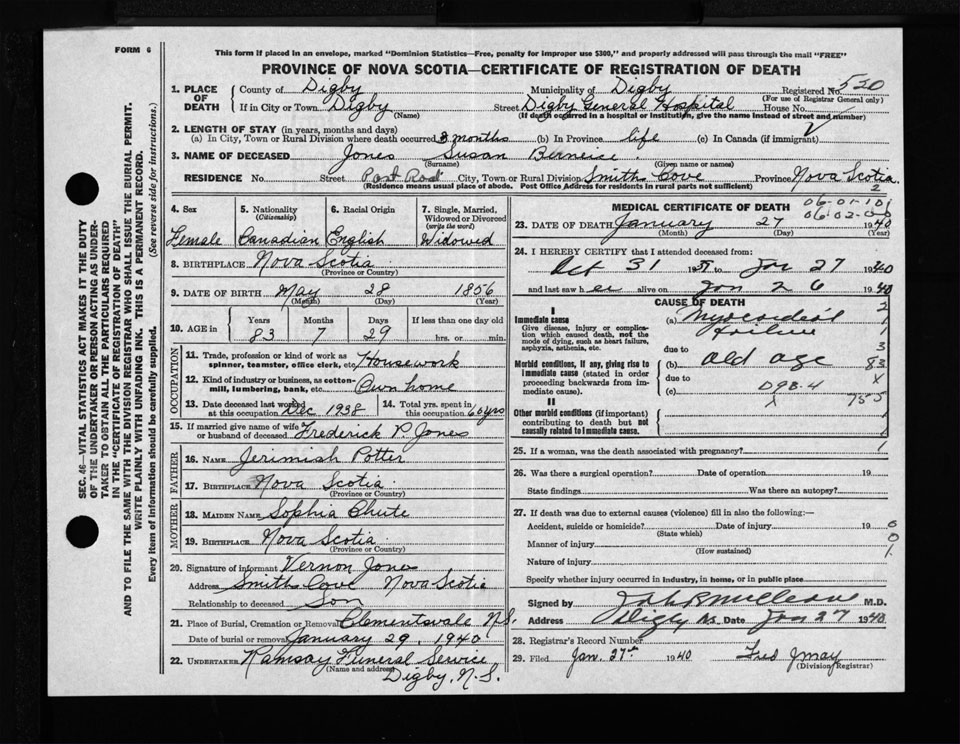 FORM 6
This form if placed in an envelope, marked "Dominion Statistics—Free, penalty for improper use $300," and properly addressed will pass through the mail "FREE"
PROVINCE OF NOVA SCOTIA—CERTIFICATE OF REGISTRATION OF DEATH
SEC. 46—VITAL STATISTICS ACT MAKES IT THE DUTY
OF THE UNDERTAKER OR PERSON ACTING AS UNDER-
TAKER TO OBTAIN ALL THE PARTICULARS REQUIRED
IN THE "CERTIFICATE OF REGISTRATION OF DEATH"
AND TO FILE THE SAME WITH THE DIVISION REGISTRAR WHO SHALL ISSUE THE BURIAL PERMIT.
WRITE PLAINLY WITH UNFADING INK. THIS IS A PERMANENT RECORD.
Every item of information should be carefully supplied. (See reverse side for instructions.)
1. PLACE OF DEATH County of Digby Municipality of Digby Registered No. 520
(For use of Registrar General only)
If in City or Town Digby Street Digby General Hospital House No.
(Name) (If death occurred in a hospital or institution, give the name instead of street and number)
2. LENGTH OF STAY (in years, months and days)
(a) In City, Town or Rural Division where death occurred 3 months (b) In Province life (c) In Canada (if immigrant)
3. NAME OF DECEASED Jones Susan Berneice
(Surname) (Given name or names)
RESIDENCE No. Street Post Road City, Town or Rural Division Smith Cove Province Nova Scotia
(Residence means usual place of abode. Post Office Address for residents in rural parts not sufficient) 2
4. Sex 5. Nationality (Citizenship) 6. Racial Origin 7. Single, Married, Widowed or Divorced (write the word)
Female Canadian English Widowed
8. BIRTHPLACE Nova Scotia
(Province or Country)
9. DATE OF BIRTH May 28 1856
(Month) (Day) (Year)
10. AGE in Years Months Days If less than one day old
83 7 29 hrs. or min.
OCCUPATION
11. Trade, profession or kind of work as spinner, teamster, office clerk, etc. Housework
12. Kind of industry or business, as cotton-mill, lumbering, bank, etc. Own home
13. Date deceased last worked at this occupation Dec 1938 14. Total yrs. spent in this occupation 60 yrs
15. If married give name of wife or husband of deceased Frederick P. Jones
FATHER
16. NAME Jerimiah Potter
17. BIRTHPLACE Nova Scotia
(Province or Country)
MOTHER
18. MAIDEN NAME Sophia Chute
19. BIRTHPLACE Nova Scotia
(Province or Country)
20. Signature of informant Vernon Jones
Address Smith's Cove Nova Scotia
Relationship to deceased Son
21. Place of Burial, Cremation or Removal Clementsvale N.S.
Date of burial or removal January 29, 1940
22. UNDERTAKER Ramsay Funeral Service
(Name and address) Digby, N.S.
MEDICAL CERTIFICATE OF DEATH
23. DATE OF DEATH January 27 1940
(Month) (Day) (Year)
24. I HEREBY CERTIFY that I attended deceased from:
Oct 31 1939 to Jan 27 1940
and last saw her alive on Jan 26 1940
CAUSE OF DEATH
I
Immediate cause (a) Myocardial failure
Give disease, injury or complication which caused death, not the mode of dying, such as heart failure, asphyxia, asthenia, etc.
due to
Morbid conditions, if any, giving rise to immediate cause (stated in order proceeding backwards from immediate cause). (b) old age 83
due to
(c)
II
Other morbid conditions (if important) contributing to death but not causally related to immediate cause.
25. If a woman, was the death associated with pregnancy?
26. Was there a surgical operation? Date of operation 19
State findings Was there an autopsy?
27. If death was due to external causes (violence) fill in also the following:—
Accident, suicide or homicide? Date of injury 19
(State which)
Manner of injury
(How sustained)
Nature of injury
Specify whether injury occurred in industry, in home, or in public place
Signed by M.D.
Address Digby N.S. Date Jan 27 1940
28. Registrar's Record Number
29. Filed Jan. 27th 1940 Fred J May
(Division Registrar)